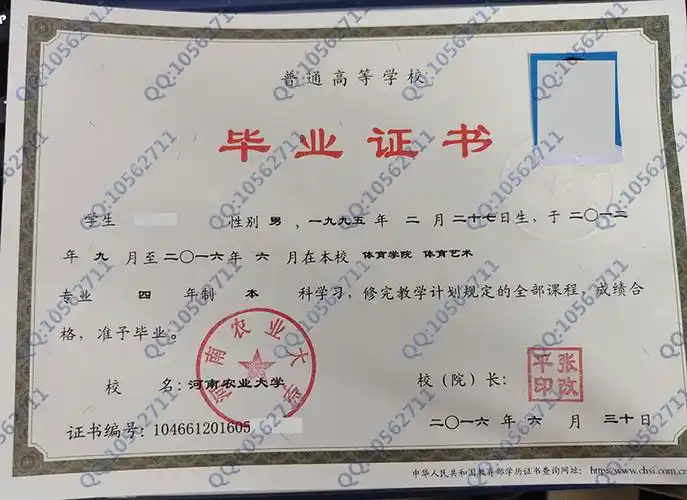 普通高等学校
毕业证书
学生 性别 男 ，一九九五 年 二 月 二十七日生，于 二〇一二
年 九 月至 二〇一六年 六 月在本校 体育学院 体育艺术
专业 四 年制 本 科学习，修完教学计划规定的全部课程，成绩合
格，准予毕业。
河南农业大学
校 名：河南农业大学
校（院）长：
张改
平印
证书编号：104661201605
二〇一六 年 六 月 三十日
中华人民共和国教育部学历证书查询网址：http://www.chsi.com.cn
QQ:10562711